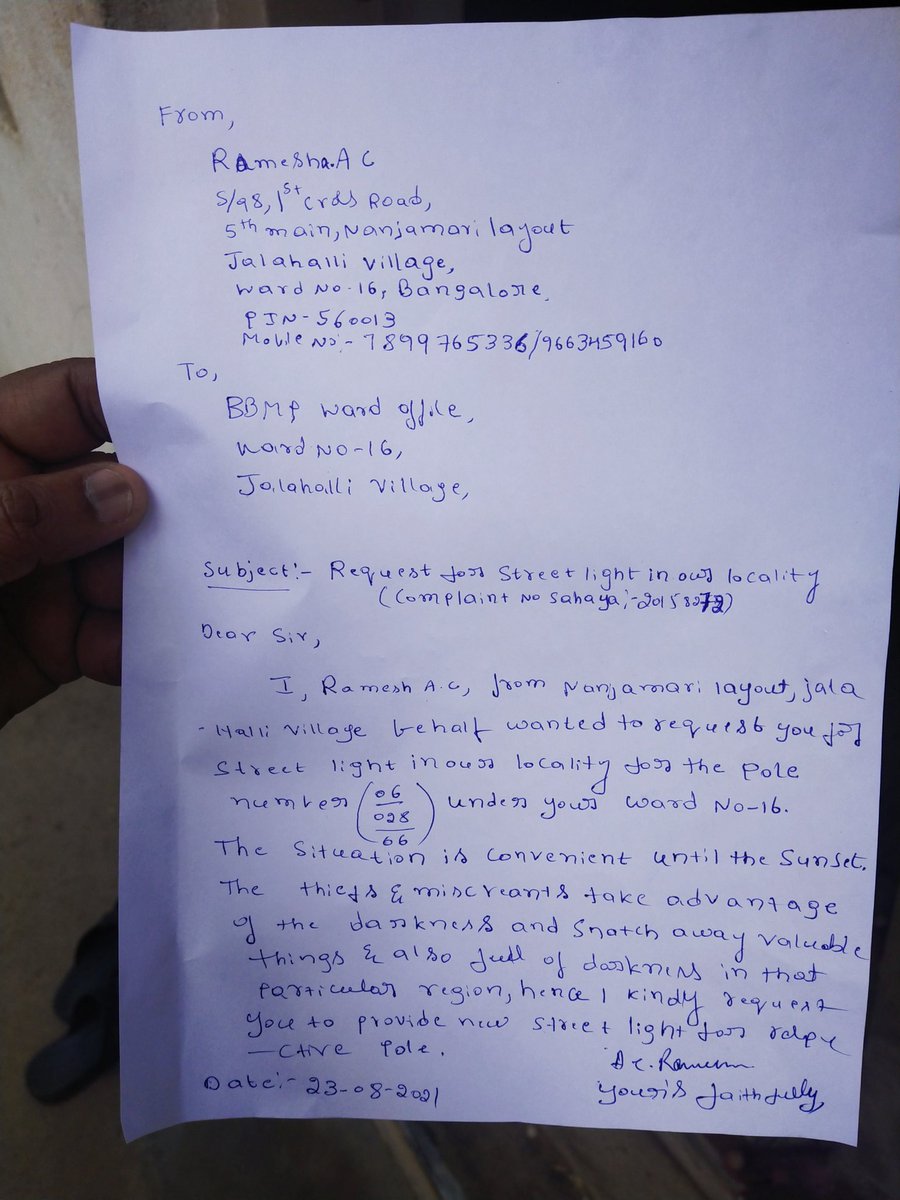 From,
Ramesha.A C
S/98, 1st Cross Road,
5th main, Nanjamari layout
Jalahalli village,
ward No-16, Bangalore.
PIN-560013
Mobile No:- 7899765336/9663459160
To,
BBMP ward office,
ward No-16,
Jalahalli village,
Subject:- Request for Street light in our locality
(Complaint No Sahaya:-
Dear Sir,
I, Ramesh A.C, from Nanjamari layout, jala
-Halli village behalf wanted to request you for
Street light in our locality for the pole
number (06/028/66) under your ward No-16.
The Situation is convenient until the Sunset.
The thiefs & miscreants take advantage
of the darkness and Snatch away valuable
things & also full of darkness in that
particular region, hence I kindly request
you to provide new street light for
-ctive Pole.
A C. Ramesh
Date:- 23-08-2021
your's faithfully,